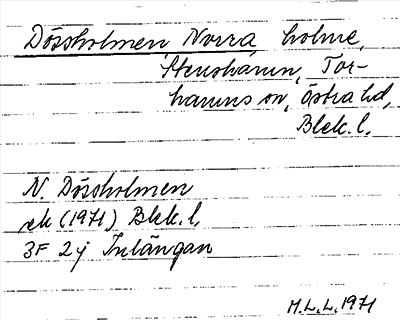 Dössholmen Norra holme,
Stenshamn, Tor-
hamns sn, Östra hd,
Blek. l.
N. Dössholmen
ek (1971) Blek. l.
3F 2 j Inlängan
M.L.L. 1971